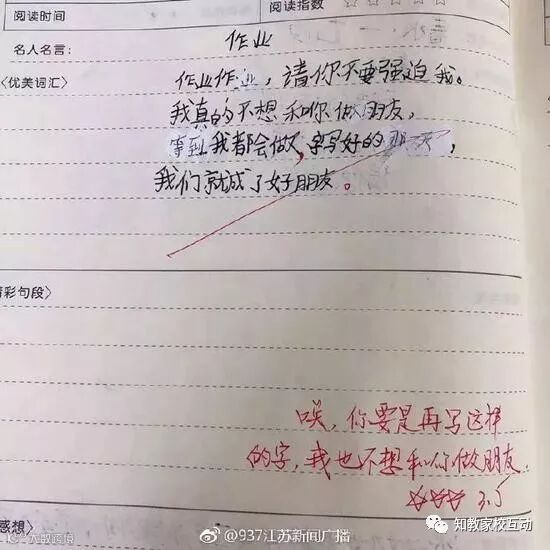 阅读时间
阅读指数 ☆☆☆☆☆
名人名言：
作业
〈优美词汇〉
作业作业，请你不要强迫我。
我真的不想和你做朋友，
等到我都会做，字写好的那一天，
我们就成了好朋友。
精彩句段〉
唉，你要是再写这样
的字，我也不想和你做朋友。
☆☆☆ 3.5
感想〉
大数跨境
@937江苏新闻广播
知教家校互动